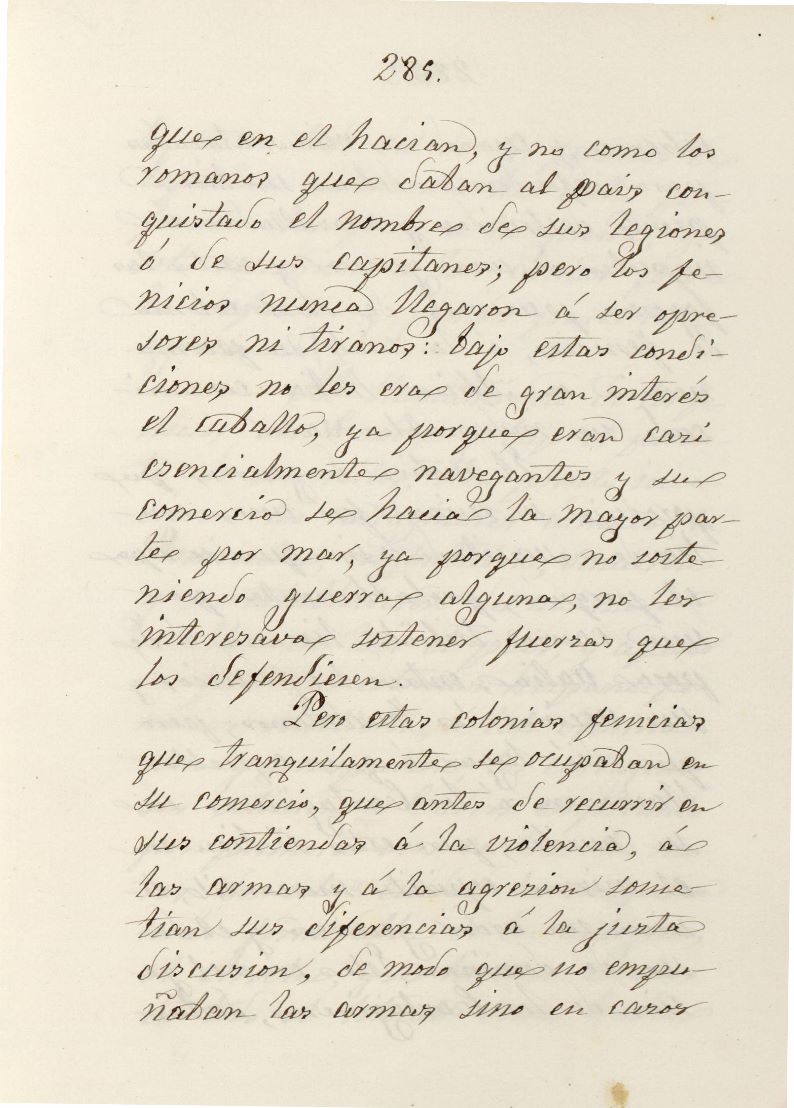 285.
que en el hacian, y no como los
romanos que daban al pais con-
quistado el nombre de sus legiones
ó de sus capitanes; pero los fe-
nicios nunca llegaron á ser opre-
sores ni tiranos: bajo estas condi-
ciones no les era de gran interés
el caballo, ya porque eran cazi
esencialmente navegantes y su
comercio se hacia la mayor par-
te por mar, ya porque no soste-
niendo guerra alguna, no les
interesava sostener fuerzas que
los defendiesen.
Pero estas colonias fenicias
que tranquilamente se ocupaban en
su comercio, que antes de recurrir en
sus contiendas á la violencia, á
las armas y á la agrezion some-
tian sus diferencias á la justa
discusion, de modo que no empu-
ñaban las armas sino en casos